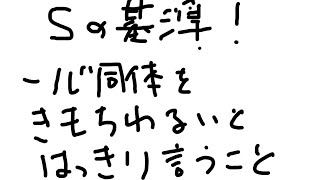 Sの基準！
ールド同体を
きもちわるいと
はっきり言うこと